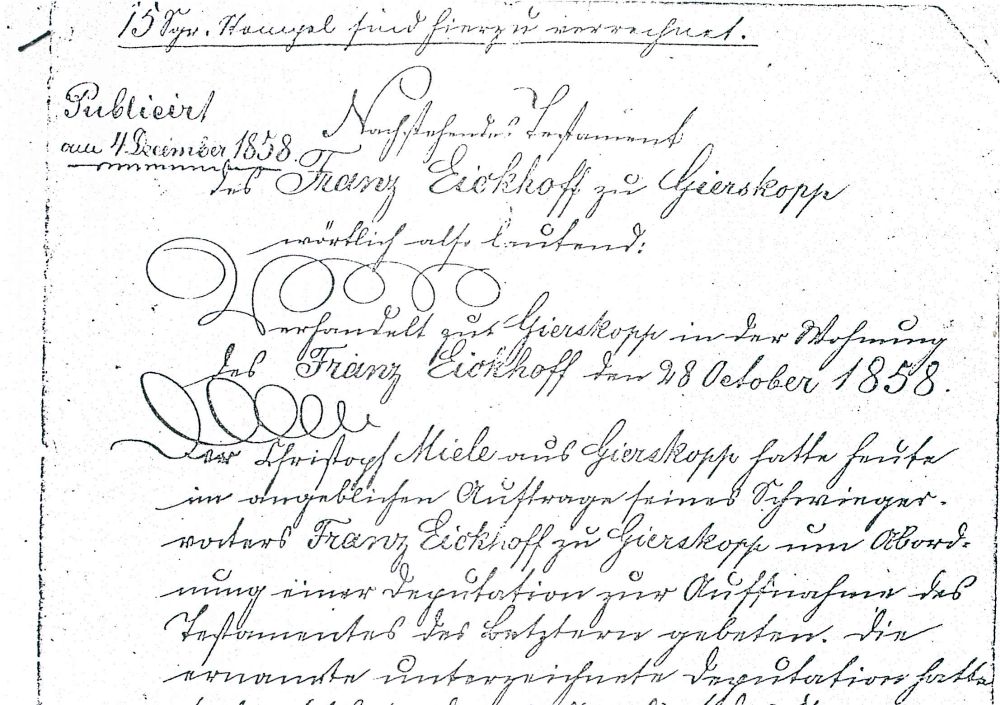 15 Sgr. Stempel sind hierzu verrechnet.
Publicirt
am 4 December 1858.
Nachstehendes Testament
des Franz Eickhoff zu Gierskopp
wörtlich also lautend:
Verhandelt zu Gierskopp in der Wohnung
des Franz Eickhoff den 28 October 1858.
Der Christoph Miele aus Gierskopp hatte heute
im angeblichen Auftrage seines Schwieger-
vaters Franz Eickhoff zu Gierskopp um Abord-
nung einer Deputation zur Aufnahme des
Testamentes des Letztern gebeten. Die
ernannte unterzeichnete Deputation hatte